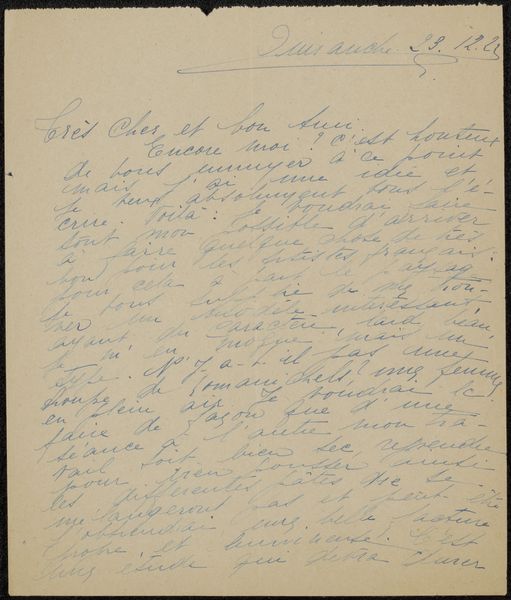 Dimanche. 23.12.23
Très Cher et bon Ami.
Encore moi! C'est honteux
de vous ennuyer à ce point
mais j'ai une idée et
je veux absolument vous l'é-
crire. Voilà: Je voudrai faire
tout mon possible d'arriver
à faire quelque chose de très
bon pour les artistes français.
pour cela
je vous supplie de me trou-
ver un modèle intéressant
ayant du caractère, laid, beau,
je m'en moque, mais un
type. N'y a-t-il pas une
troupe de romanichels? une femme
en plein air. Je voudrai le
faire de façon que d'une
séance à l'autre mon tra-
vail soit bien sec, reprendre
pour bien pousser ainsi
les différentes pâtes ne se
mélangeront pas et peut être
j'obtiendrai une belle facture
propre et lumineuse! C'est
une étude qui devra durer